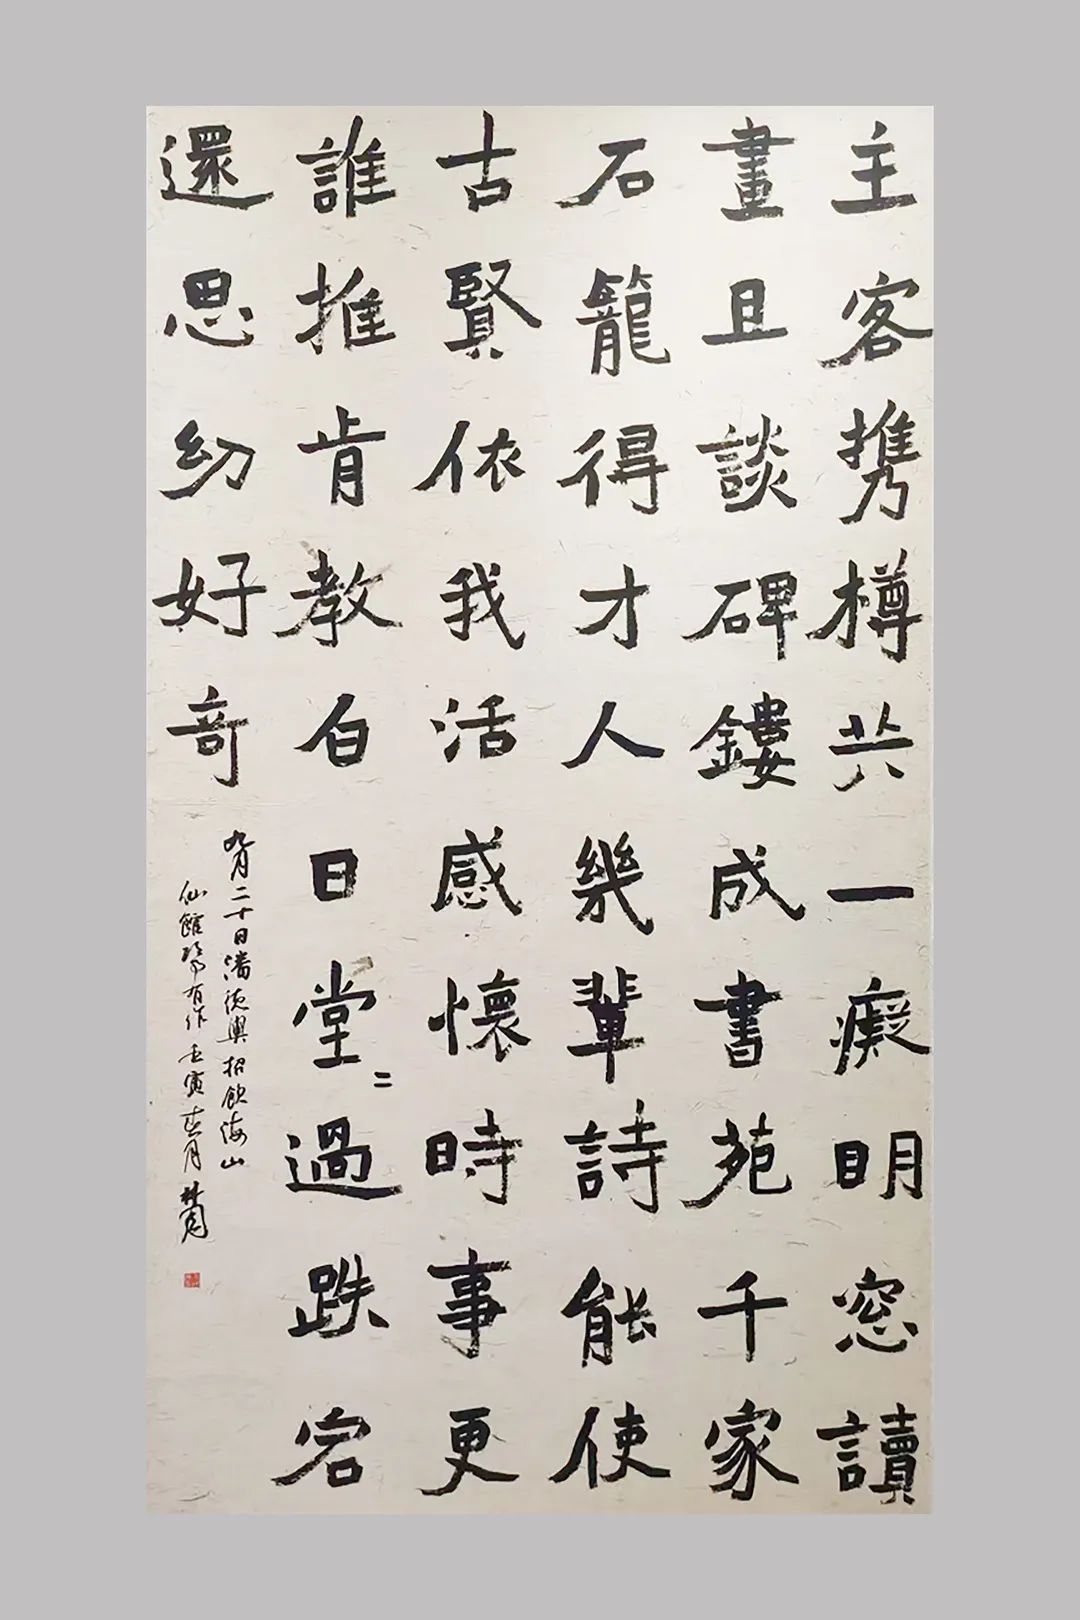 主客攜樽共一癡明窓讀
畫且談碑鏤成書苑千家
石籠得才人幾輩詩能使
古賢依我活感懷時事更
誰推肯教白日堂二過跌宕
還思幼好奇
九月二十日潘德輿招飲海山
仙館 有作壬寅 月